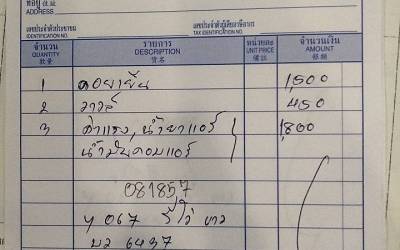 ที่อยู่
ADDRESS
เลขประจำตัวประชาชน เลขประจำตัวผู้เสียภาษีอากร
IDENTIFICATION NO. TAX IDENTIFICATION NO.
จำนวน รายการ หน่วยละ จำนวนเงิน
QUANTITY DESCRIPTION UNIT PRICE AMOUNT
1 คอยเย็น 1,500
2 วาวล์ 450
3 ค่าแรง, น้ำยาแอร์ 1,800
น้ำมันคอมแอร์
081857
067 รีโว่ ขาว
6437